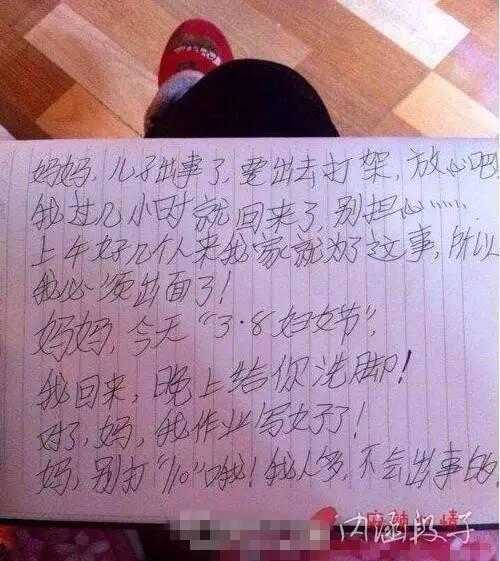 妈妈，儿子出事了，要出去打架，放心吧
我过几小时就回来了，别担心……
上午好几个人来我家就为了这事，所以
我必须出面了！
妈妈，今天“3·8妇女节”，
我回来，晚上给你洗脚！
对了，妈，我作业写好了！
妈，别打“110”哦！我人多，不会出事的！
内涵段子